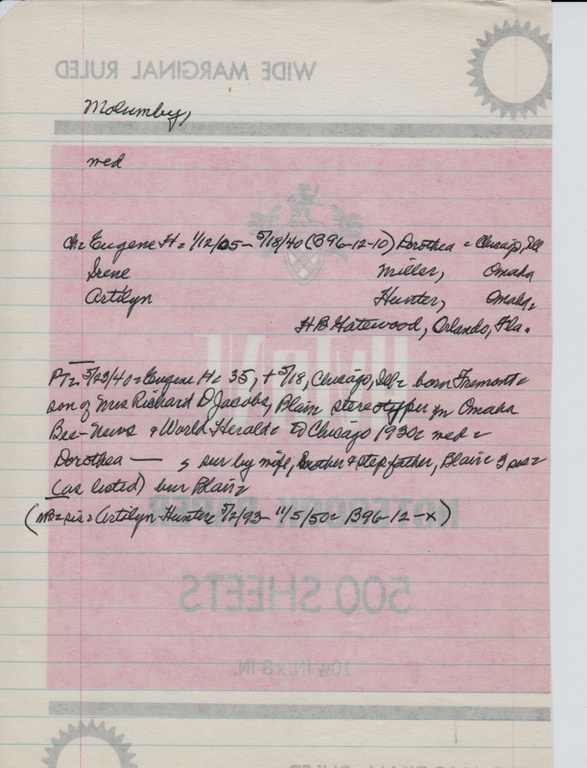 WIDE MARGINAL RULED
Molumby,
med
ch = Eugene H = 1/12/05 - 5/18/40 (B96-12-10) Dorothea = Chicago, Ill
Irene Miller, Omaha
Artilyn Hunter, Omaha
H B Gatewood, Orlando, Fla.
PT = 5/23/40 = Eugene H = 35, + 5/18, Chicago, Ill = born Fremont =
son of Mrs Richard D Jacobs, Blair = stereotyper for Omaha
Bee-News & World Herald = to Chicago 1930 = med =
Dorothea — sur by wife, mother & stepfather, Blair = 3 sis =
(as listed) bur Blair =
( sis = Artilyn Hunter = 5/2/93 - 11/5/50 = B96-12-x)
NOTEBOOK
500 SHEETS
10½ IN. x 8 IN.
MARGINAL RULED